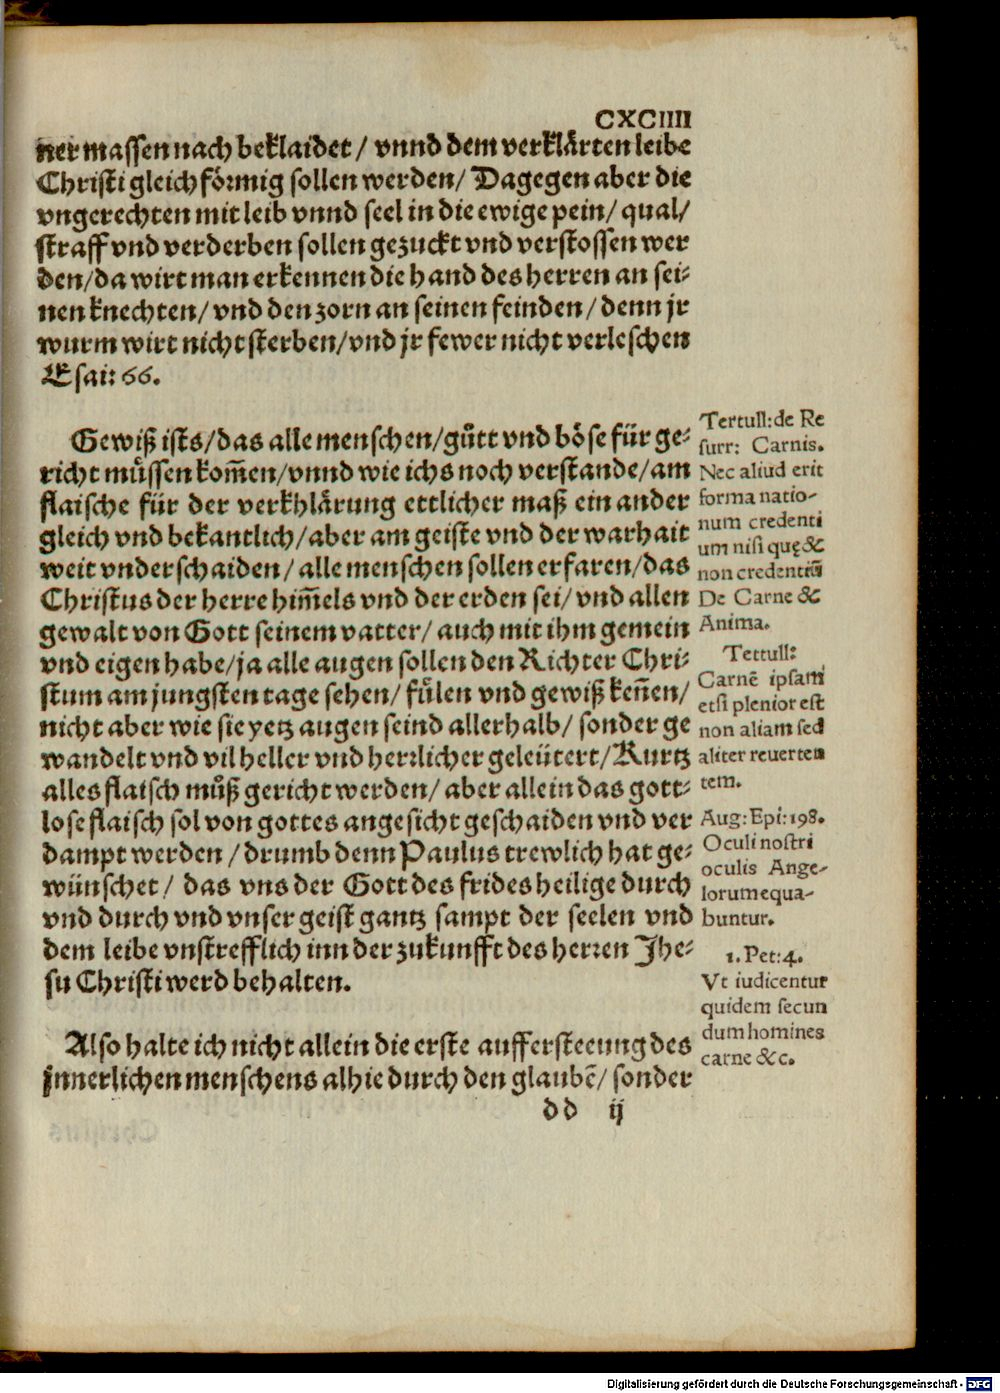 CXCIIII
ner massen nach beklaidet / vnnd dem verklårten leibe
Christi gleichförmig sollen werden / Dagegen aber die
vngerechten mit leib vnnd seel in die ewige pein / qual /
straff vnd verderben sollen gezuckt vnd verstossen wer
den / da wirt man erkennen die hand des herren an sei⸗
nen knechten / vnd den zorn an seinen feinden / denn jr
wurm wirt nicht sterben / vnd jr fewer nicht verleschen
Esai: 66.
Gewiß ists / das alle menschen / gůtt vnd böse für ge⸗
richt müssen kom̄en / vnnd wie ichs noch verstande / am
flaische für der verkhlårung ettlicher maß ein ander
gleich vnd bekantlich / aber am geiste vnd der warhait
weit vnderschaiden / alle menschen sollen erfaren / das
Christus der herre him̄els vnd der erden sei / vnd allen
gewalt von Gott seinem vatter / auch mit ihm gemein
vnd eigen habe / ja alle augen sollen den Richter Chri⸗
stum am jungsten tage sehen / fůlen vnd gewiß ken̄en /
nicht aber wie sie yetz augen seind allerhalb / sonder ge
wandelt vnd vil heller vnd herrlicher geleütert / Kurtz
alles flaisch můß gericht werden / aber allein das gott⸗
lose flaisch sol von gottes angesicht geschaiden vnd ver
dampt werden / drumb denn Paulus trewlich hat ge⸗
wünschet / das vns der Gott des frides heilige durch
vnd durch vnd vnser geist gantz sampt der seelen vnd
dem leibe vnstrefflich inn der zukunfft des herren Jhe⸗
su Christi werd behalten.
Also halte ich nicht allein die erste aufferstecung des
jnnerlichen menschens alhie durch den glaubē / sonder
dd ij
Tertull: de Re
surr: Carnis.
Nec aliud erit
forma natio-
num credenti
um nisi quę &
non credentiū
De Carne &
Anima.
Tertull:
Carnē ipsam
etsi plenior est
non aliam sed
aliter reuerten
tem.
Aug: Epi: 198.
Oculi nostri
oculis Ange-
lorum equa-
buntur.
1. Pet: 4.
Vt iudicentur
quidem secun
dum homines
carne &c.
Digitalisierung gefördert durch die Deutsche Forschungsgemeinschaft - DFG